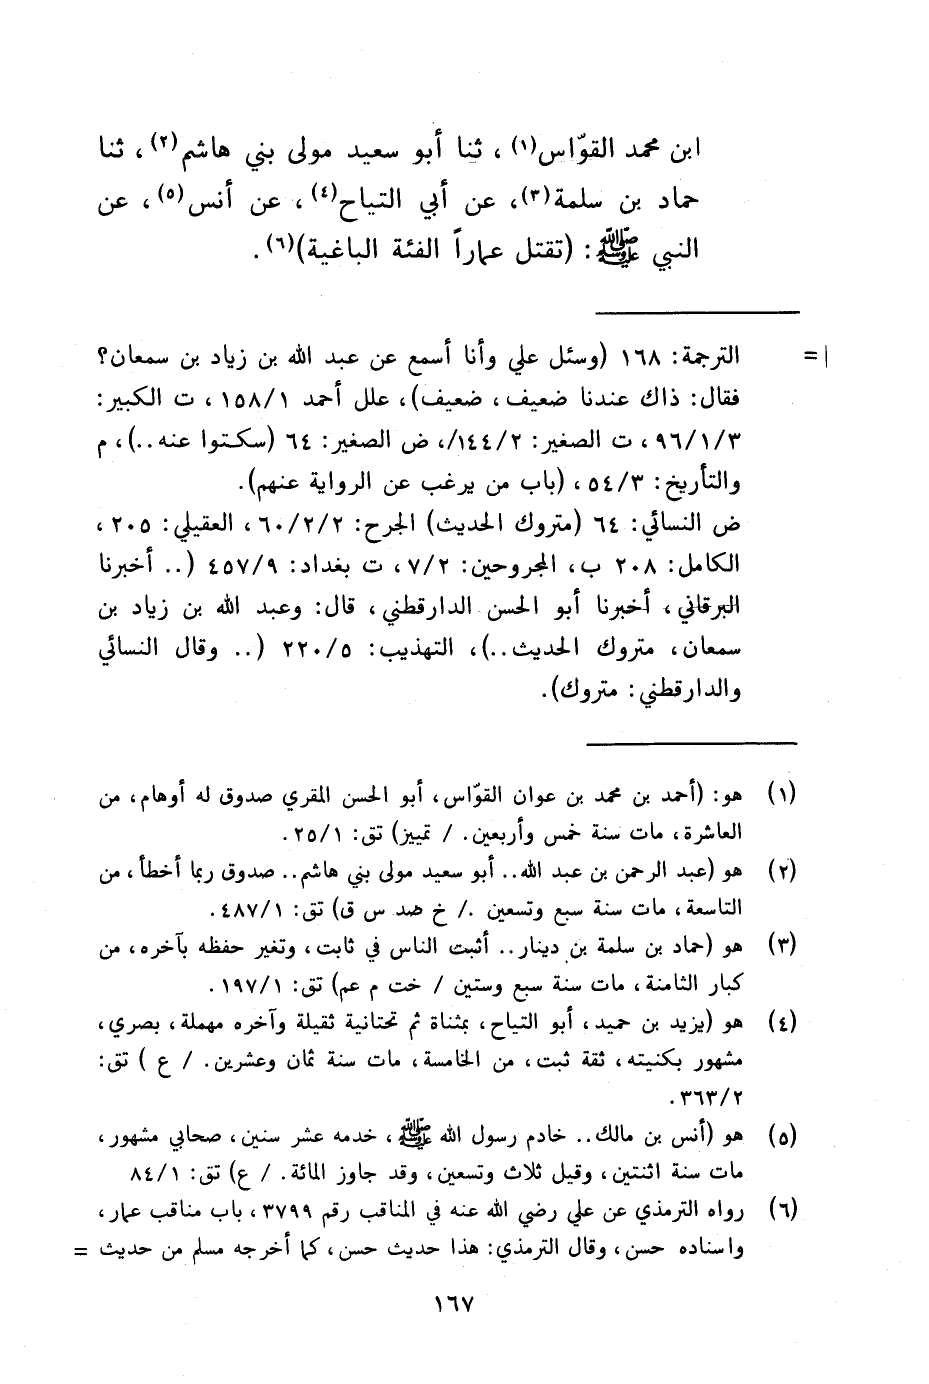 ابن محمد القوّاس(١)، ثنا أبو سعيد مولى بني هاشم(٢)، ثنا
حماد بن سلمة(٣)، عن أبي التياح(٤)، عن أنس(٥)، عن
النبي ﷺ: (تقتل عماراً الفئة الباغية)(٦).
= الترجمة: ١٦٨ (وسئل علي وأنا أسمع عن عبد الله بن زياد بن سمعان؟
فقال: ذاك عندنا ضعيف، ضعيف)، علل أحمد ١٥٨/١، ت الكبير:
٩٦/١/٣، ت الصغير: ١٤٤/٢/، ض الصغير: ٦٤ (سكتوا عنه..)، م
والتأريخ: ٥٤/٣، (باب من يرغب عن الرواية عنهم).
ض النسائي: ٦٤ (متروك الحديث) الجرح: ٦٠/٢/٢، العقيلي: ٢٠٥،
الكامل: ٢٠٨ ب، المجروحين: ٧/٢، ت بغداد: ٤٥٧/٩ (.. أخبرنا
البرقاني، أخبرنا أبو الحسن الدارقطني، قال: وعبد الله بن زياد بن
سمعان، متروك الحديث..)، التهذيب: ٢٢٠/٥ (.. وقال النسائي
والدارقطني: متروك).
(١) هو: (أحمد بن محمد بن عوان القوّاس، أبو الحسن المقري صدوق له أوهام، من
العاشرة، مات سنة خمس وأربعين. / تمييز) تق: ٢٥/١.
(٢) هو (عبد الرحمن بن عبد الله.. أبو سعيد مولى بني هاشم.. صدوق ربما أخطأ، من
التاسعة، مات سنة سبع وتسعين ./ خ صد س ق) تق: ٤٨٧/١.
(٣) هو (حماد بن سلمة بن دينار.. أثبت الناس في ثابت، وتغير حفظه بآخره، من
كبار الثامنة، مات سنة سبع وستين / خت م عم) تق: ١٩٧/١.
(٤) هو (يزيد بن حميد، أبو التياح، بمثناة ثم تحتانية ثقيلة وآخره مهملة، بصري،
مشهور بكنيته، ثقة ثبت، من الخامسة، مات سنة ثمان وعشرين. / ع ) تق:
٣٦٣/٢.
(٥) هو (أنس بن مالك.. خادم رسول الله ﷺ، خدمه عشر سنين، صحابي مشهور،
مات سنة اثنتين، وقيل ثلاث وتسعين، وقد جاوز المائة. / ع) تق: ٨٤/١
(٦) رواه الترمذي عن علي رضي الله عنه في المناقب رقم ٣٧٩٩، باب مناقب عمار،
واسناده حسن، وقال الترمذي: هذا حديث حسن، كما أخرجه مسلم من حديث =
١٦٧